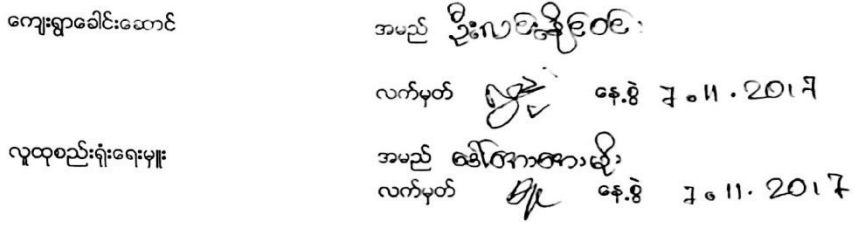 ကျေးရွာခေါင်းဆောင် အမည် ဦးလင်းနိုင်ဝင်း
လက်မှတ် နေ့စွဲ 7.11.2017
လူထုစည်းရုံးရေးမှူး အမည်
လက်မှတ် နေ့စွဲ 7.11.2017